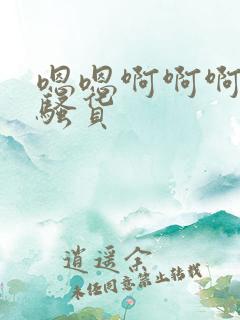 嗯嗯啊啊啊
骚货
逍遥余
未经同意禁止转载